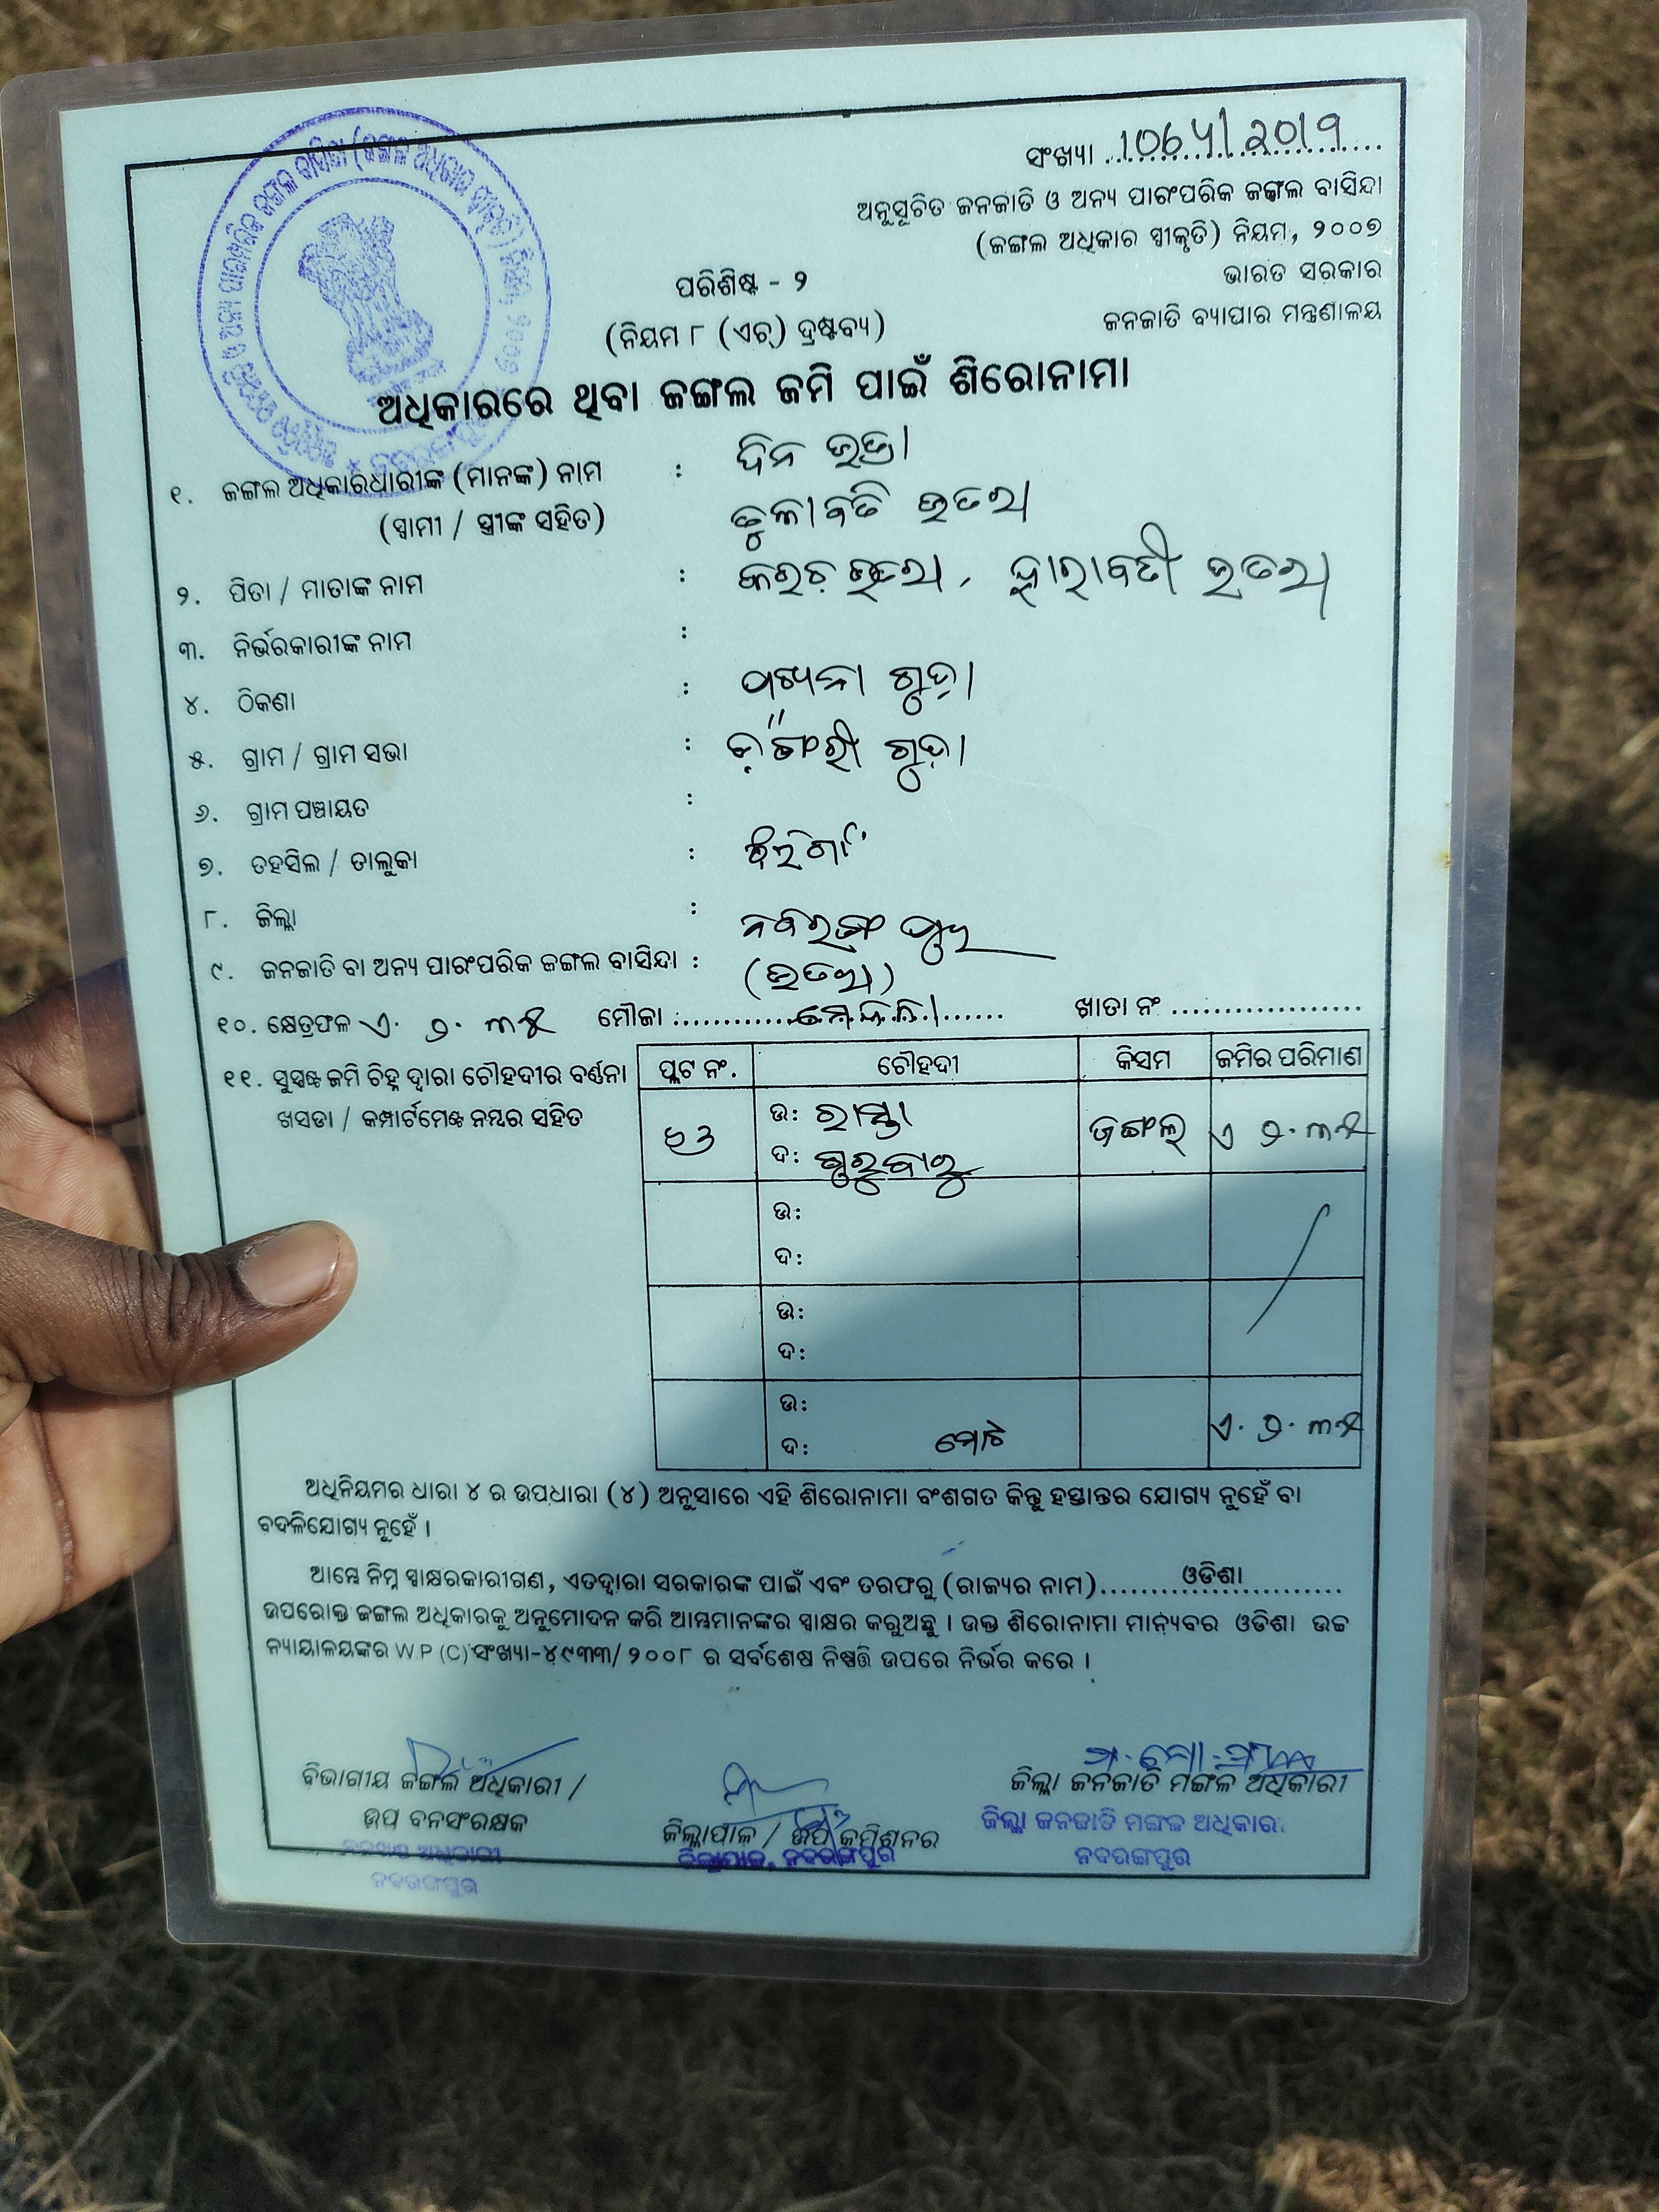 ସଂଖ୍ୟା
ଅନୁସୂଚିତ ଜନଜାତି ଓ ଅନ୍ୟ ପାରଂପରିକ ଜଙ୍ଗଲ ବାସିନ୍ଦା
(ଜଙ୍ଗଲ ଅଧିକାର ସ୍ୱୀକୃତି) ନିୟମ, ୨୦୦୭
ଭାରତ ସରକାର
ଜନଜାତି ବ୍ୟାପାର ମନ୍ତ୍ରଣାଳୟ
ପରିଶିଷ୍ଟ - ୨
(ନିୟମ ୮ (ଏଚ୍) ଦ୍ରଷ୍ଟବ୍ୟ)
ଅଧିକାରରେ ଥିବା ଜଙ୍ଗଲ ଜମି ପାଇଁ ଶିରୋନାମା
୧. ଜଙ୍ଗଲ ଅଧିକାରଧାରୀଙ୍କ (ମାନଙ୍କ) ନାମ : ଦିନ ଭତ୍ରା
(ସ୍ୱାମୀ / ସ୍ତ୍ରୀଙ୍କ ସହିତ) ଭତରା
୨. ପିତା / ମାତାଙ୍କ ନାମ : ଭତରା, ଭତରା
୩. ନିର୍ଭରକାରୀଙ୍କ ନାମ :
୪. ଠିକଣା : ଗୁଡ଼ା
୫. ଗ୍ରାମ / ଗ୍ରାମ ସଭା : ଗୁଡ଼ା
୬. ଗ୍ରାମ ପଞ୍ଚାୟତ :
୭. ତହସିଲ / ତାଲୁକା : ଝରିଗାଁ
୮. ଜିଲ୍ଲା : ନବରଙ୍ଗପୁର
୯. ଜନଜାତି ବା ଅନ୍ୟ ପାରଂପରିକ ଜଙ୍ଗଲ ବାସିନ୍ଦା : (ଭତରା)
୧୦. କ୍ଷେତ୍ରଫଳ ମୌଜା ଖାତା ନଂ
୧୧. ସୁସ୍ପଷ୍ଟ ଜମି ଚିହ୍ନ ଦ୍ୱାରା ଚୌହଦୀର ବର୍ଣ୍ଣନା
ଖସଡା / କମ୍ପାର୍ଟମେଣ୍ଟ ନମ୍ବର ସହିତ
ପ୍ଲଟ ନଂ. ଚୌହଦୀ କିସମ ଜମିର ପରିମାଣ
ଉ: ରାସ୍ତା ଜଙ୍ଗଲ୍
ଦ:
ଉ:
ଦ:
ଉ:
ଦ:
ଉ:
ଦ: ମୋଟ
ଅଧିନିୟମର ଧାରା ୪ ର ଉପଧାରା (୪) ଅନୁସାରେ ଏହି ଶିରୋନାମା ବଂଶଗତ କିନ୍ତୁ ହସ୍ତାନ୍ତର ଯୋଗ୍ୟ ନୁହେଁ ବା
ବଦଳିଯୋଗ୍ୟ ନୁହେଁ ।
ଆମ୍ଭେ ନିମ୍ନ ସ୍ୱାକ୍ଷରକାରୀଗଣ, ଏତଦ୍ୱାରା ସରକାରଙ୍କ ପାଇଁ ଏବଂ ତରଫରୁ (ରାଜ୍ୟର ନାମ) ଓଡିଶା
ଉପରୋକ୍ତ ଜଙ୍ଗଲ ଅଧିକାରକୁ ଅନୁମୋଦନ କରି ଆମ୍ଭମାନଙ୍କର ସ୍ୱାକ୍ଷର କରୁଅଛୁ । ଉକ୍ତ ଶିରୋନାମା ମାନ୍ୟବର ଓଡିଶା ଉଚ୍ଚ
ନ୍ୟାୟାଳୟଙ୍କର W.P (C) ସଂଖ୍ୟା-୪୯୩୩/ ୨୦୦୮ ର ସର୍ବଶେଷ ନିଷ୍ପତ୍ତି ଉପରେ ନିର୍ଭର କରେ ।
ବିଭାଗୀୟ ଜଙ୍ଗଲ ଅଧିକାରୀ /
ଉପ ବନସଂରକ୍ଷକ
ନବରଙ୍ଗପୁର
ଜିଲ୍ଲାପାଳ / ଉପ କମିଶନର
ଜିଲ୍ଲାପାଳ, ନବରଙ୍ଗପୁର
ଜିଲ୍ଲା ଜନଜାତି ମଙ୍ଗଳ ଅଧିକାରୀ
ଜିଲ୍ଲା ଜନଜାତି ମଙ୍ଗଳ ଅଧିକାରୀ
ନବରଙ୍ଗପୁର